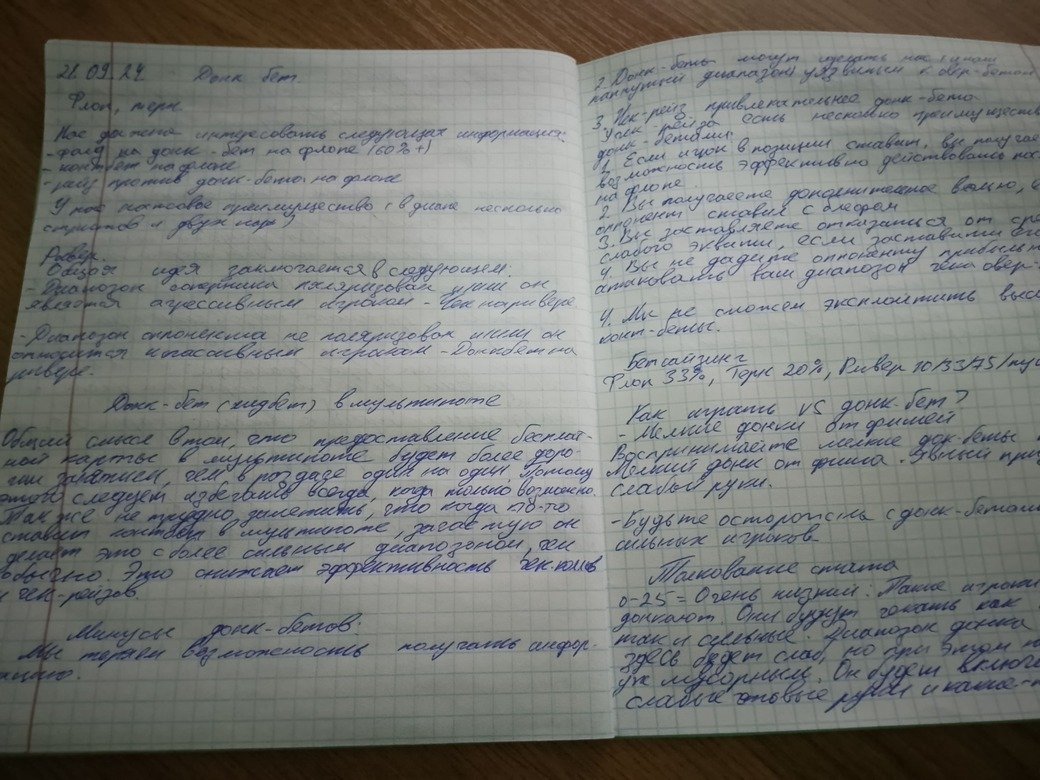 21.09.24 Донк бет.
Флоп, терн
Нас должна интересовать следующая информация:
- фолд на донк-бет на флопе (60%+)
- контбет на флопе
- рейз против донк-бета на флопе
У нас натсовое преимущество (в диапе несколько
стритов и двух пар)
Ривер.
Общая идея заключается в следующем.
- Диапазон соперника поляризован или он
является агрессивным игроком - Чек на ривере.
- Диапазон оппонента не поляризован и он
относится к пассивным игрокам - Донкбет на
ривере.
Донк-бет (лидбет) в мультипоте
Общий смысл в том, что предоставление бесплат-
ной карты в мультипоте будет более доро-
гим занятием, чем в раздаче один на один. Поэтому
этого следует избегать всегда, когда только возможно.
Так же не трудно заметить, что когда кто-то
ставит контбет в мультипоте, зачастую он
делает это с более сильным диапазоном, чем
обычно. Это снижает эффективность чек-колов
и чек-рейзов.
Минусы донк-бетов:
Мы теряем возможность получать инфор-
мацию.
2. Донк-беты могут сделать наш
диапазон уязвимым к овер-бетам
3. Чек-рейз привлекательнее донк-бета
Чек-рейза есть несколько преимуществ
донк-бетами
1. Если игрок в позиции ставит, вы получае
возможность эффективно действовать
на флопе.
2. Вы получаете дополнительное вэлью,
оппонент ставил с блефом
3. Вы заставляете отказаться от
слабого эквити, если заставили его
4. Вы не дадите оппоненту прибыльно
атаковать ваш диапазон овер-
4. Мы не сможем эксплойтить
конт-беты.
Бетсайзинг
Флоп 33%, Терн 20%, Ривер 10/33/75/
Как играть vs донк-бет?
- Мелкие донки от фишей
Воспринимайте мелкие док-беты
Мелкий донк от фиша. Явный
слабой руки.
- Будьте осторожны с донк-бетами
сильных игроков
Толкование стата
0-25 = Очень низкий: Такие игроки
донкают. Они будут чекать как
так и сильные. Диапазон донка
здесь будет слаб, но при этом не
уж мусорным. Он будет включа
слабые готовые руки и какие-